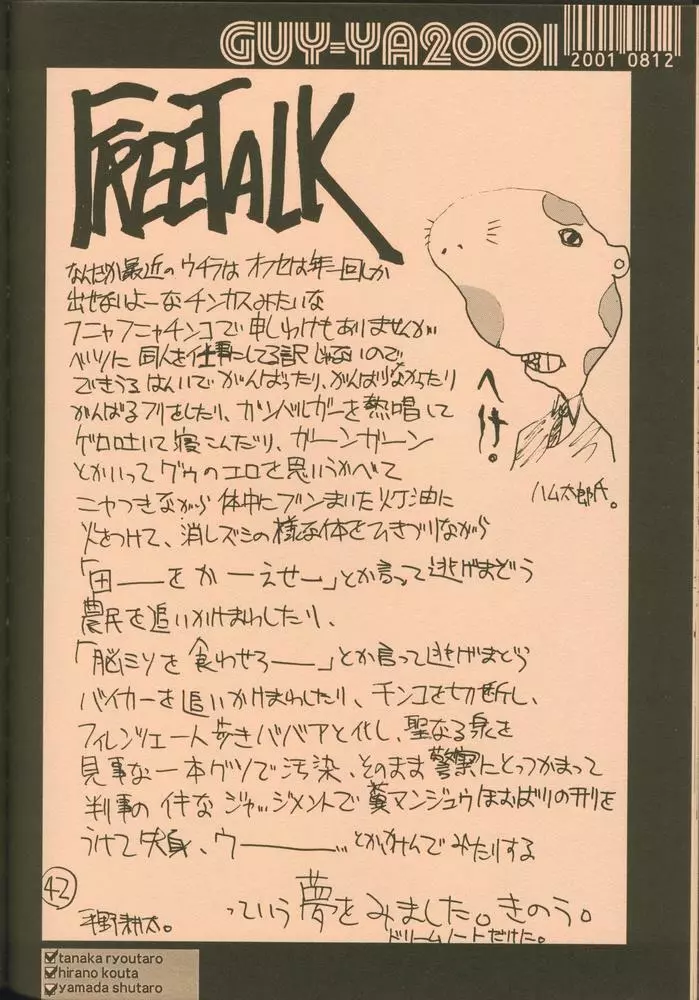 GUY-YA2001
2001 0812
FREETALK
なんだか最近のウチラは オフセは年一回しか
出せないよーなチンカスみたいな
フニャフニャチンコで申しわけもありませんが
ベツに 同人を仕事にしてる訳じゃないので
できうるはんいで がんばったり、がんばりなかったり
がんばるフリをしたり、ガンバルガーを熱唱して
ゲロ吐いて寝こんだり、ガーンガーン
とかいって グゥのエロを思いうかべて
ニヤつきながら 体中にブンまいた灯油に
火をつけて、消しズミの様な体をひきづりながら
「田——をか一えせー」とか言って逃げまどう
農民を追いかけまわしたり、
「脳ミソを食わせろ——」とか言って逃げまどう
バイカーを追いかけまわしたり、チンコを切断し、
フィレンツェ一人歩きババアと化し、聖なる泉を
見事な一本グソで汚染、そのまま警察にとっつかまって
判事のイキなジャッジメントで糞マンジュウほおばりの刑を
うけて失身、ウ———…とかかけんでみたりする
っていう夢をみました。きのう。
ドリームノートだけに。
へけ!
ハム太郎氏。
42
平野耕太。
tanaka ryoutaro
hirano kouta
yamada shutaro